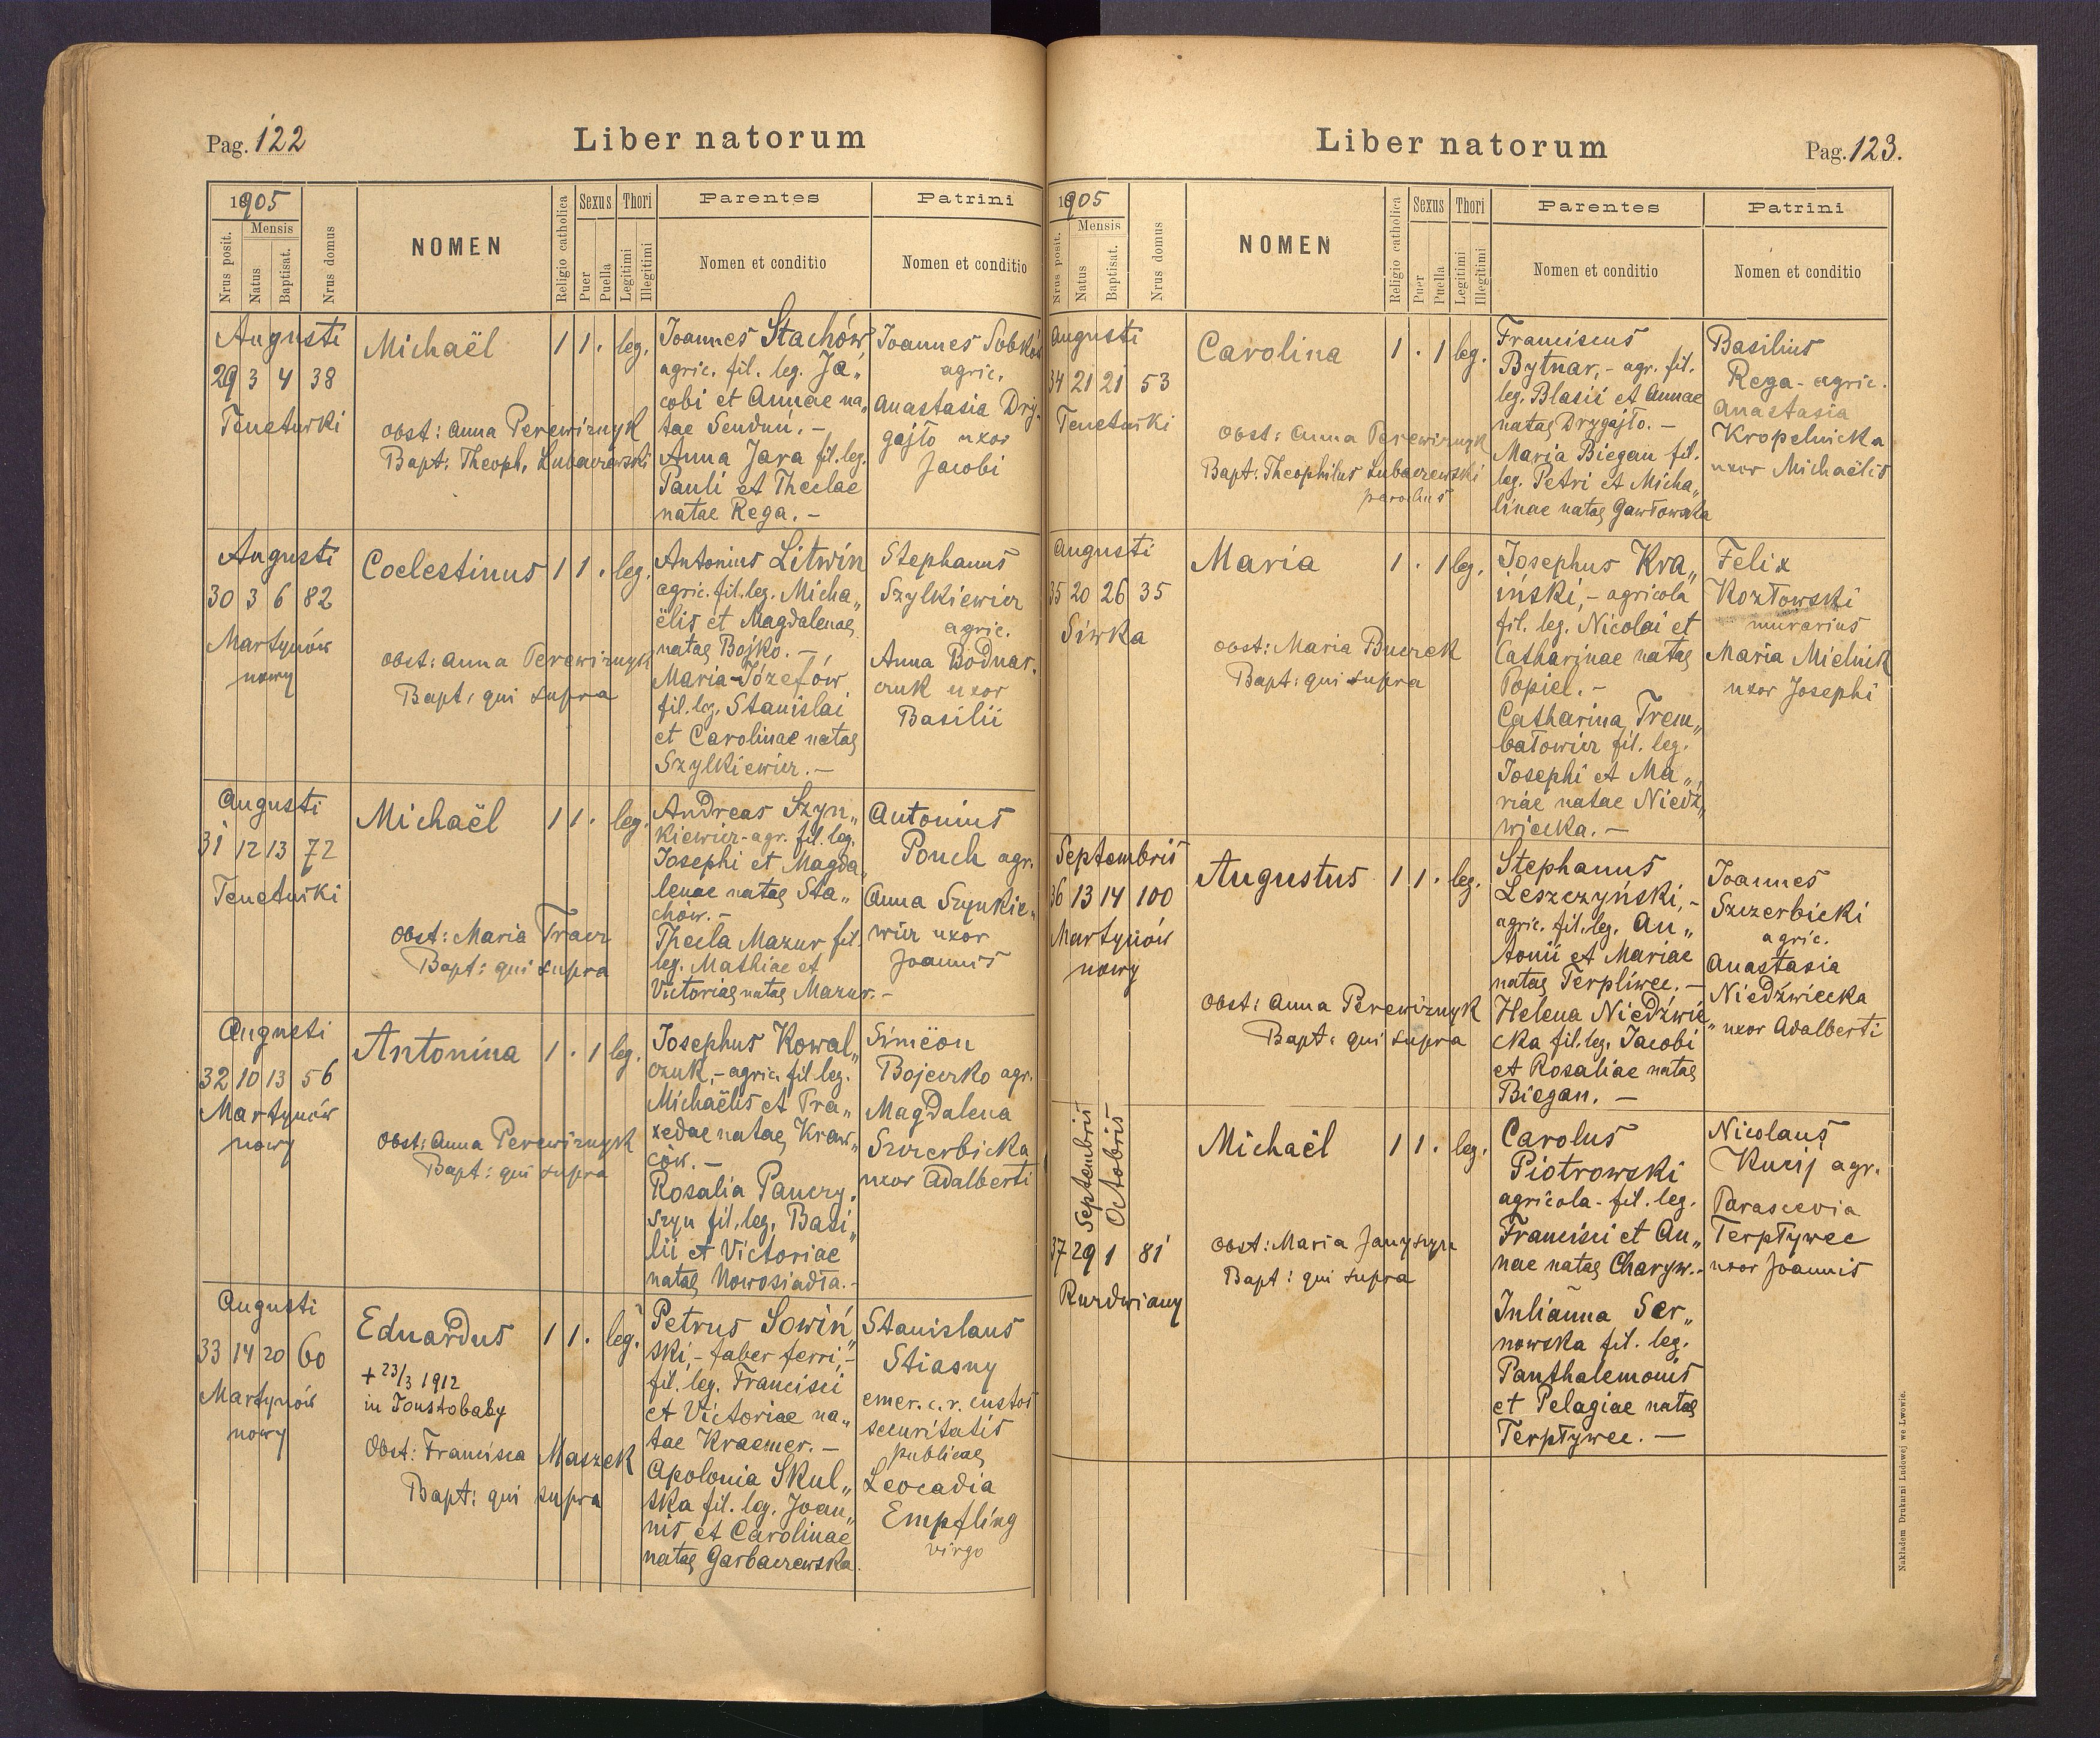 Pag. 122
Liber natorum
1905
Mensis
Nrus posit.
Natus
Baptisat.
Nrus domus
NOMEN
Religio catholica
Sexus
Puer
Puella
Thori
Legitimi
Illegitimi
Parentes
Nomen et conditio
Patrini
Nomen et conditio
Augusti
29 3 4 38
Tenetniki
Michaël
1 1 . leg.
Obst: Anna Perewiznyk
Bapt: Theoph. Lubaczewski
Joannes Stachów
agric. fil. leg. Ja„
cobi et Annae na„
tae Senduń. –
Anna Jara fil. leg.
Pauli et Theclae
natae Rega. –
Joannes Sobków
agric.
Anastasia Dry„
gajło uxor
Jacobi
Augusti
30 3 6 82
Martynów
nowy
Coelestinus
1 1 . leg.
Obst: Anna Perewiznyk
Bapt: qui supra
Antonius Litwin
agric. fil. leg. Micha„
ëlis et Magdalenae
natae Bojko. –
Maria Józefów
fil. leg. Stanislai
et Carolinae natae
Szylkiewicz. –
Stephanus
Szylkiewicz
agric.
Anna Bodnar„
czuk uxor
Basilii
Augusti
31 12 13 72
Tenetniki
Michaël
1 1 . leg.
Obst: Maria Tracz
Bapt: qui supra
Andreas Szyn„
kiewicz - agr. fil. leg.
Josephi et Magda„
lenae natae Sta„
chów. –
Thecla Mazur fil.
leg. Mathiae et
Victoriae natae Mazur. –
Antonius
Pouch agr.
Anna Szynkie„
wicz uxor
Joannis
Augusti
32 10 13 56
Martynów
nowy
Antonina
1 . 1 leg.
Obst: Anna Perewiznyk
Bapt: qui supra
Josephus Kowal„
czuk, – agric. fil. leg.
Michaëlis et Pra„
xedae natae Kraw„
ców. –
Rosalia Panczy„
szyn fil. leg. Basi„
lii et Victoriae
natae Nowosiadła. –
Simëon
Bojeczko agr.
Magdalena
Szczerbicka
uxor Adalberti
Augusti
33 14 20 60
Martynów
nowy
Eduardus
1 1 . leg.
+ 23/3 1912
in Toustobaby
Obst: Francisca Maszek
Bapt: qui supra
Petrus Sowiń„
ski, – faber ferri, –
fil. leg. Francisci
et Victoriae na„
tae Kraemer. –
Apolonia Skul„
ska fil. leg. Joan„
nis et Carolinae
natae Garbaczewska.
Stanislaus
Stiasny
emer. c. r. custos
securitatis
publicae
Leocadia
Empfling
virgo
Liber natorum
Pag. 123.
1905
Mensis
Nrus posit.
Natus
Baptisat.
Nrus domus
NOMEN
Religio catholica
Sexus
Puer
Puella
Thori
Legitimi
Illegitimi
Parentes
Nomen et conditio
Patrini
Nomen et conditio
Augusti
34 21 21 53
Tenetniki
Carolina
1 . 1 leg.
Obst: Anna Perewiznyk
Bapt: Theophilus Lubaczewski
parochus
Franciscus
Bytnar, – agr. fil.
leg. Blasii et Annae
natae Drygajło. –
Maria Biegan fil.
leg. Petri et Micha„
linae natae Gawłowska
Basilius
Rega - agric.
Anastasia
Kropelnicka
uxor Michaëlis
Augusti
35 20 26 35
Siwka
Maria
1 . 1 leg.
Obst: Maria Buczek
Bapt: qui supra
Josephus Kra„
iński, – agricola
fil. leg. Nicolai et
Catharinae natae
Popiel. –
Catharina Trem„
batowicz fil. leg.
Josephi et Ma„
riae natae Niedź„
wiecka. –
Felix
Kozłowski
murarius
Maria Mielnik
uxor Josephi
Septembris
36 13 14 100
Martynów
nowy
Augustus
1 1 . leg.
Obst: Anna Perewiznyk
Bapt: qui supra
Stephanus
Leszczyński, –
agric. fil. leg. An„
tonii et Mariae
natae Terpliwec. –
Helena Niedźwie„
cka fil. leg. Jacobi
et Rosaliae natae
Biegan. –
Joannes
Szczerbicki
agric.
Anastasia
Niedźwiecka
uxor Adalberti
Septembris
Octobris
37 29 1 81
Kurdwiany
Michaël
1 1 . leg.
Obst: Maria Janyszyn
Bapt: qui supra
Carolus
Piotrowski
agricola - fil. leg.
Francisci et An„
nae natae Charyw. –
Julianna Ser„
nowska fil. leg.
Panthalemonis
et Pelagiae natae
Terpływec. –
Nicolaus
Kucij agr.
Parascevia
Terpływec
uxor Joannis
Nakładem Drukarni Ludowej we Lwowie.